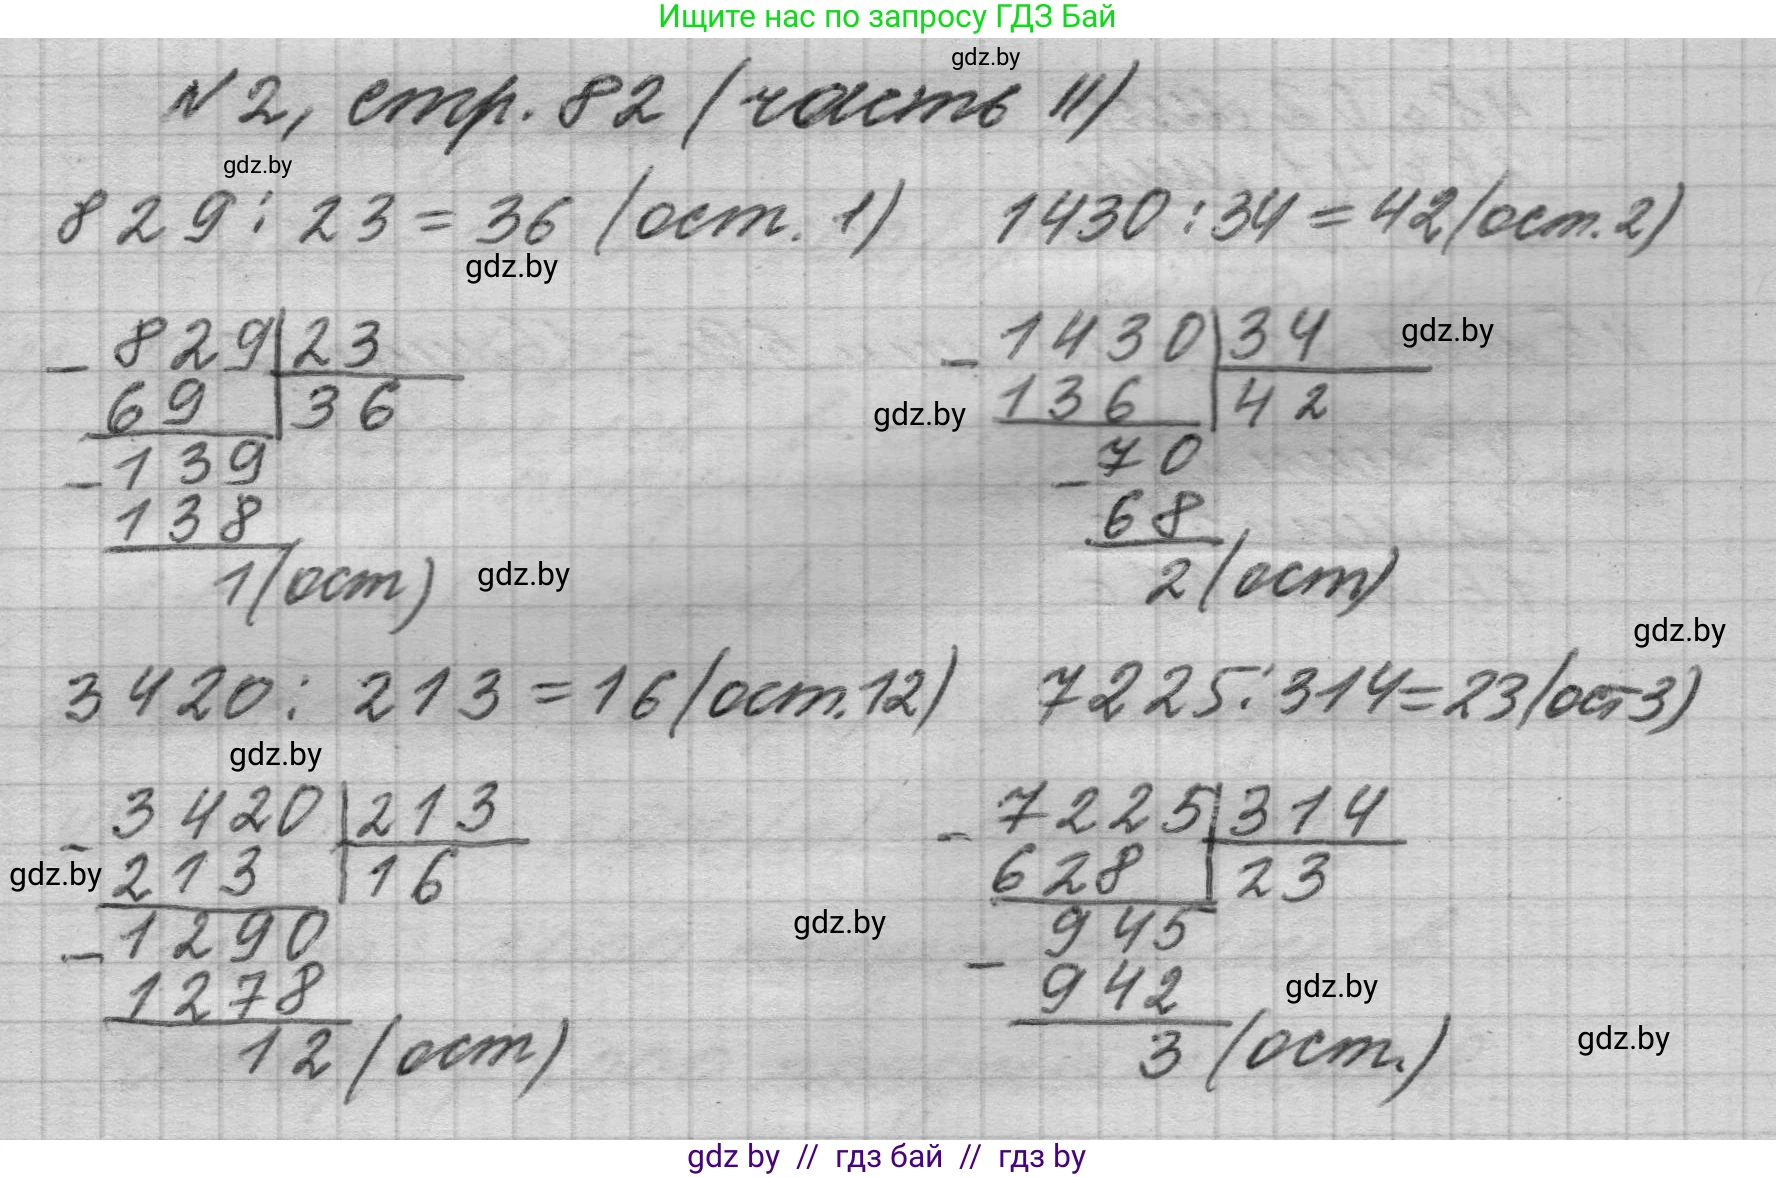 Ищите нас по запросу ГДЗ Бай
gdz.by
N 2, стр. 82 (часть II)
gdz.by
829 : 23 = 36 (ост. 1)
1430 : 34 = 42 (ост. 2)
gdz.by
829 | 23
- 69 | 36
139
- 138
1 (ост)
gdz.by
1430 | 34
- 136 | 42
70
- 68
2 (ост)
gdz.by
gdz.by
gdz.by
3420 : 213 = 16 (ост. 12)
7225 : 314 = 23 (ост 3)
gdz.by
3420 | 213
- 213 | 16
1290
- 1278
12 (ост)
gdz.by
7225 | 314
- 628 | 23
945
- 942
3 (ост.)
gdz.by
gdz.by
gdz.by
gdz by // гдз бай // гдз by